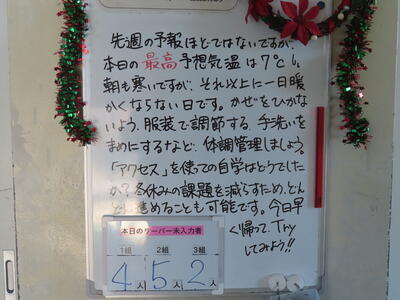 先週の予報ほどではないですが、
本日の最高予想気温は7℃。
朝も寒いですが、それ以上に一日暖
かくならない日です。かぜをひかな
いよう、服装で調節する、手洗いを
まめにするなど、体調管理しましょう。
「アクセス」を使っての自学はどうでした
か?冬休みの課題を減らすため、どん
進めることも可能です。今日早
く帰って、Try
してみよう!!
本日のリーバー未入力者
1組 2組 3組
4人 5人 2人